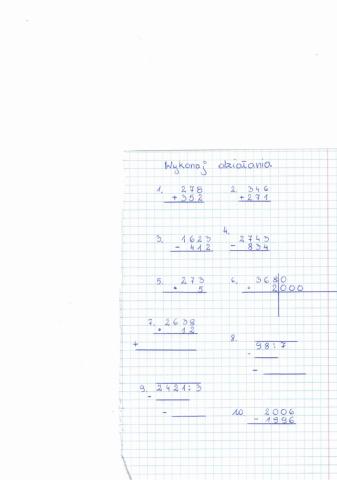 Wykonaj działania
1. 278 2. 346
+352 +271
3. 1623 4. 2743
- 412 - 834
5. 273 6. 3680
• 5 • 2000
7. 2638 8. 98:7
• 12
+ -
-
9. 2421:3
-
- 10. 2006
- 1996